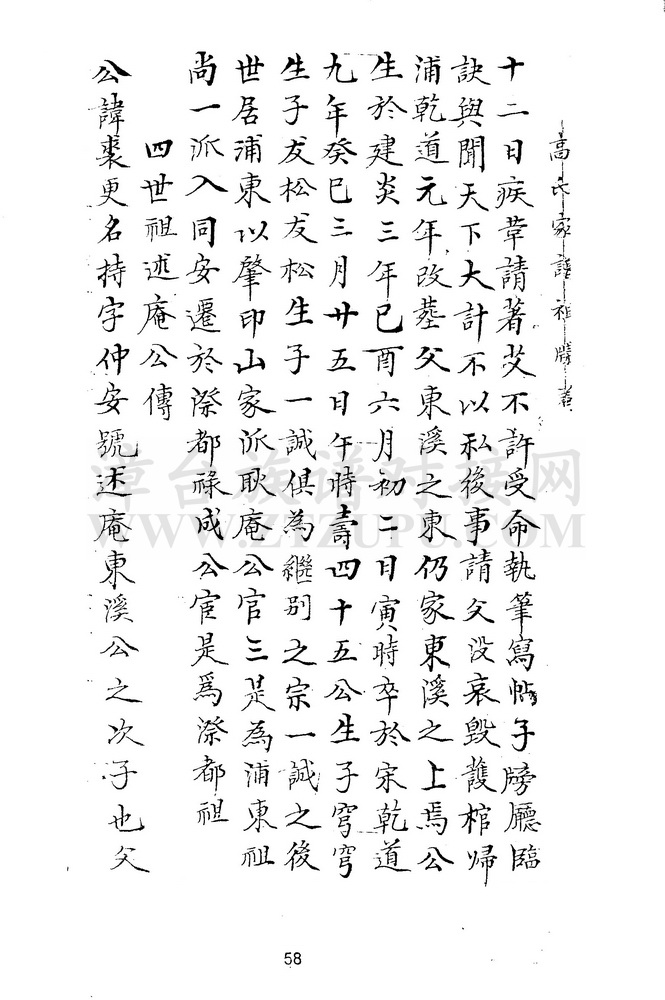 高氏家譜祖牒考
十二日疾革請著艾不許受命執筆寫帖子牓廳臨
訣與聞天下大計不以私後事請父没哀毁護棺歸
浦乾道元年改塟父東溪之東仍家東溪之上焉公
生於建炎三年巳酉六月初二日寅時卒於宋乾道
九年癸巳三月廿五日午時壽四十五公生子穹穹
生子友松友松生子一誠俱為繼别之宗一誠之後
世居浦東以肇印山家派耿庵公官三是為浦東祖
尚一派入同安遷於漈都祿成公宦是爲漈都祖
四世祖述庵公傳
公諱裘更名持字仲安號述庵東溪公之次子也父
漳台族谱对接网
WWW.ZTZUPU.COM
58